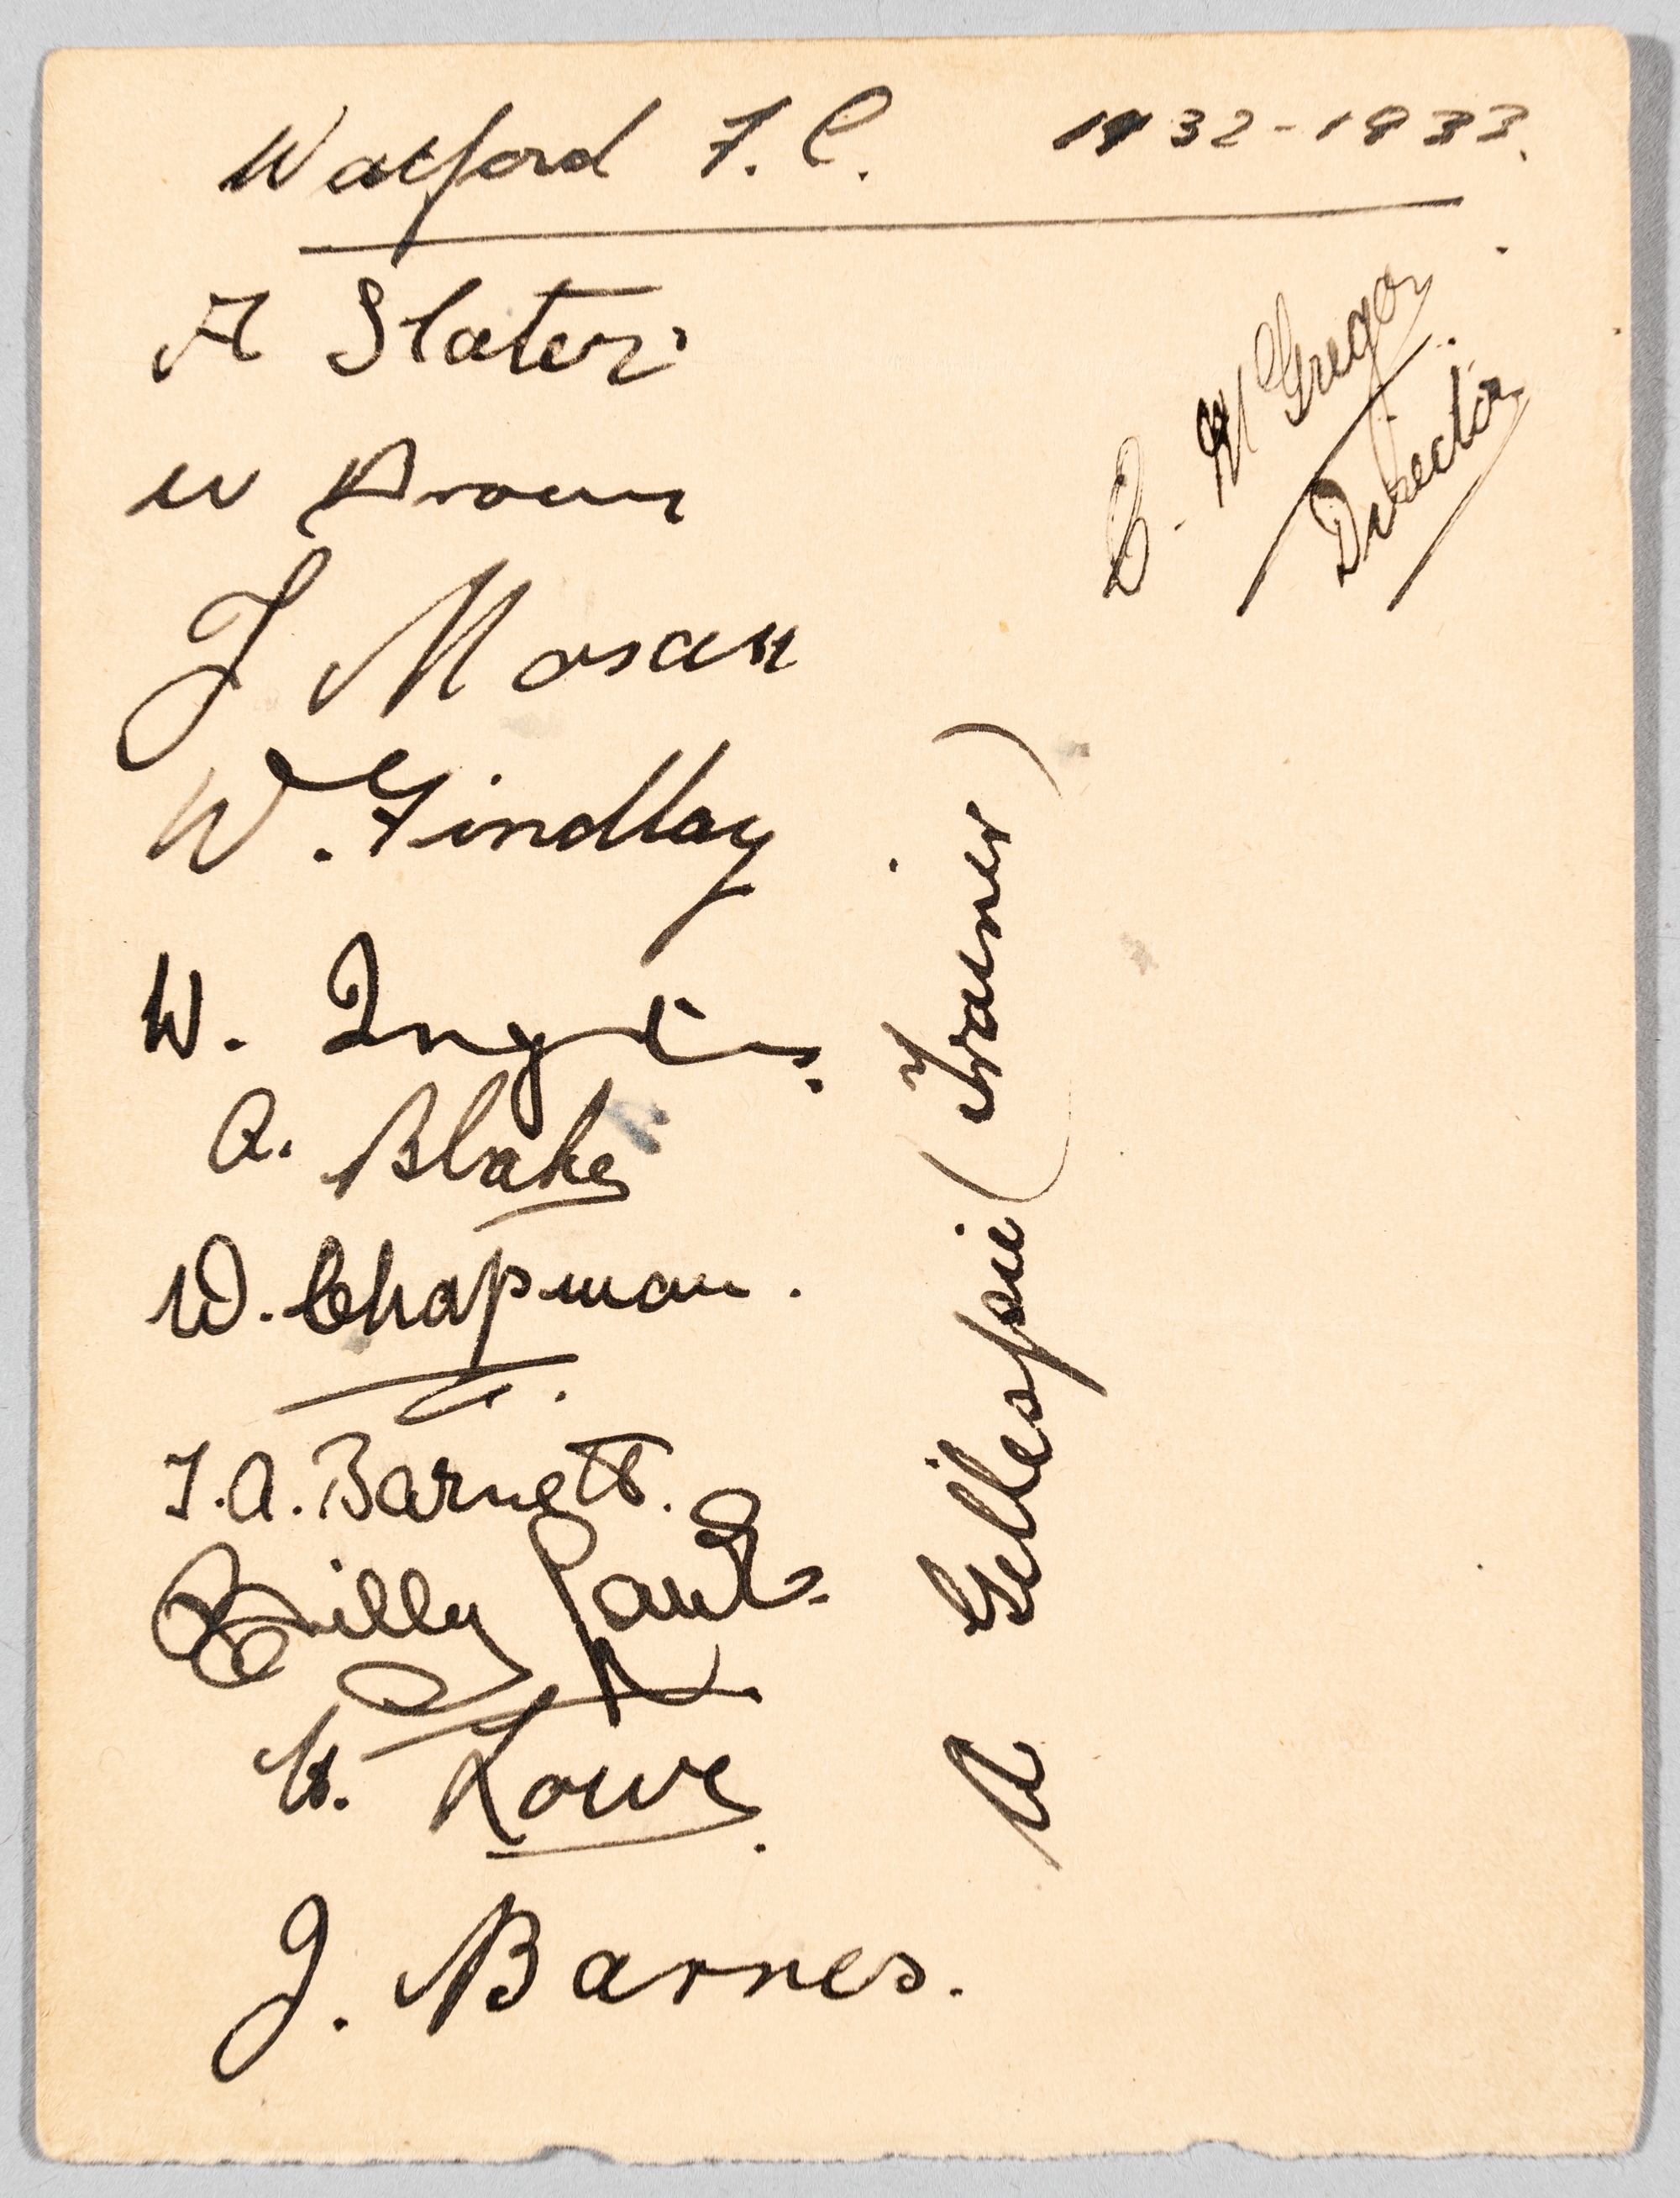 Watford F.C. 1932-1933.
A Slater.
W Brown
J Moran
W. Findlay
W.
A. Blake
W. Chapman.
T.A. Barnett.
Billy
W. Lowe.
J. Barnes.
A Gillespie (Trainer)
McGregor
Director